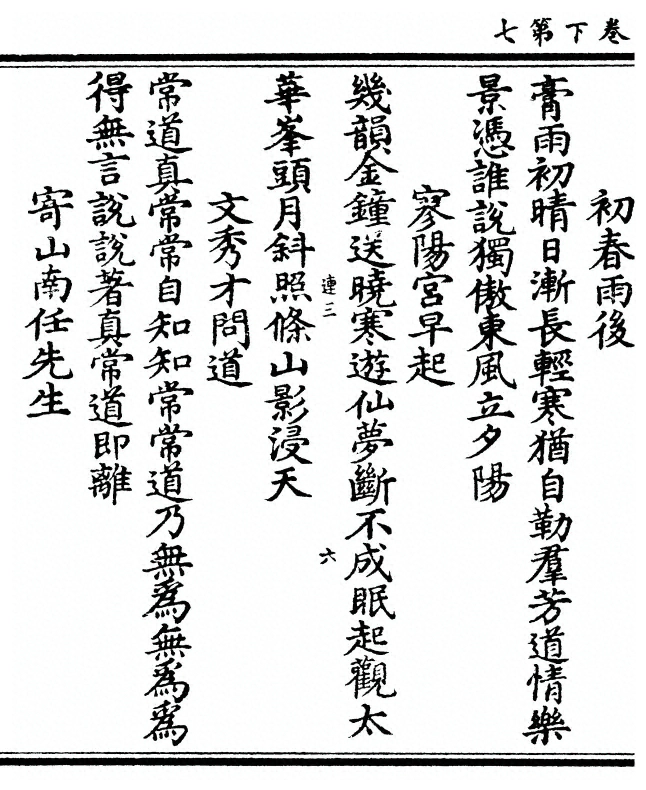 卷下第七
初春雨後
膏雨初晴日漸長輕寒猶自勒羣芳道情樂
景憑誰說獨傲東風立夕陽
寥陽宮早起
幾韻金鐘送曉寒遊仙夢斷不成眠起觀太
連三
六
華峯頭月斜照條山影浸天
文秀才問道
常道真常常自知知常常道乃無為無為為
得無言說說著真常道即離
寄山南任先生